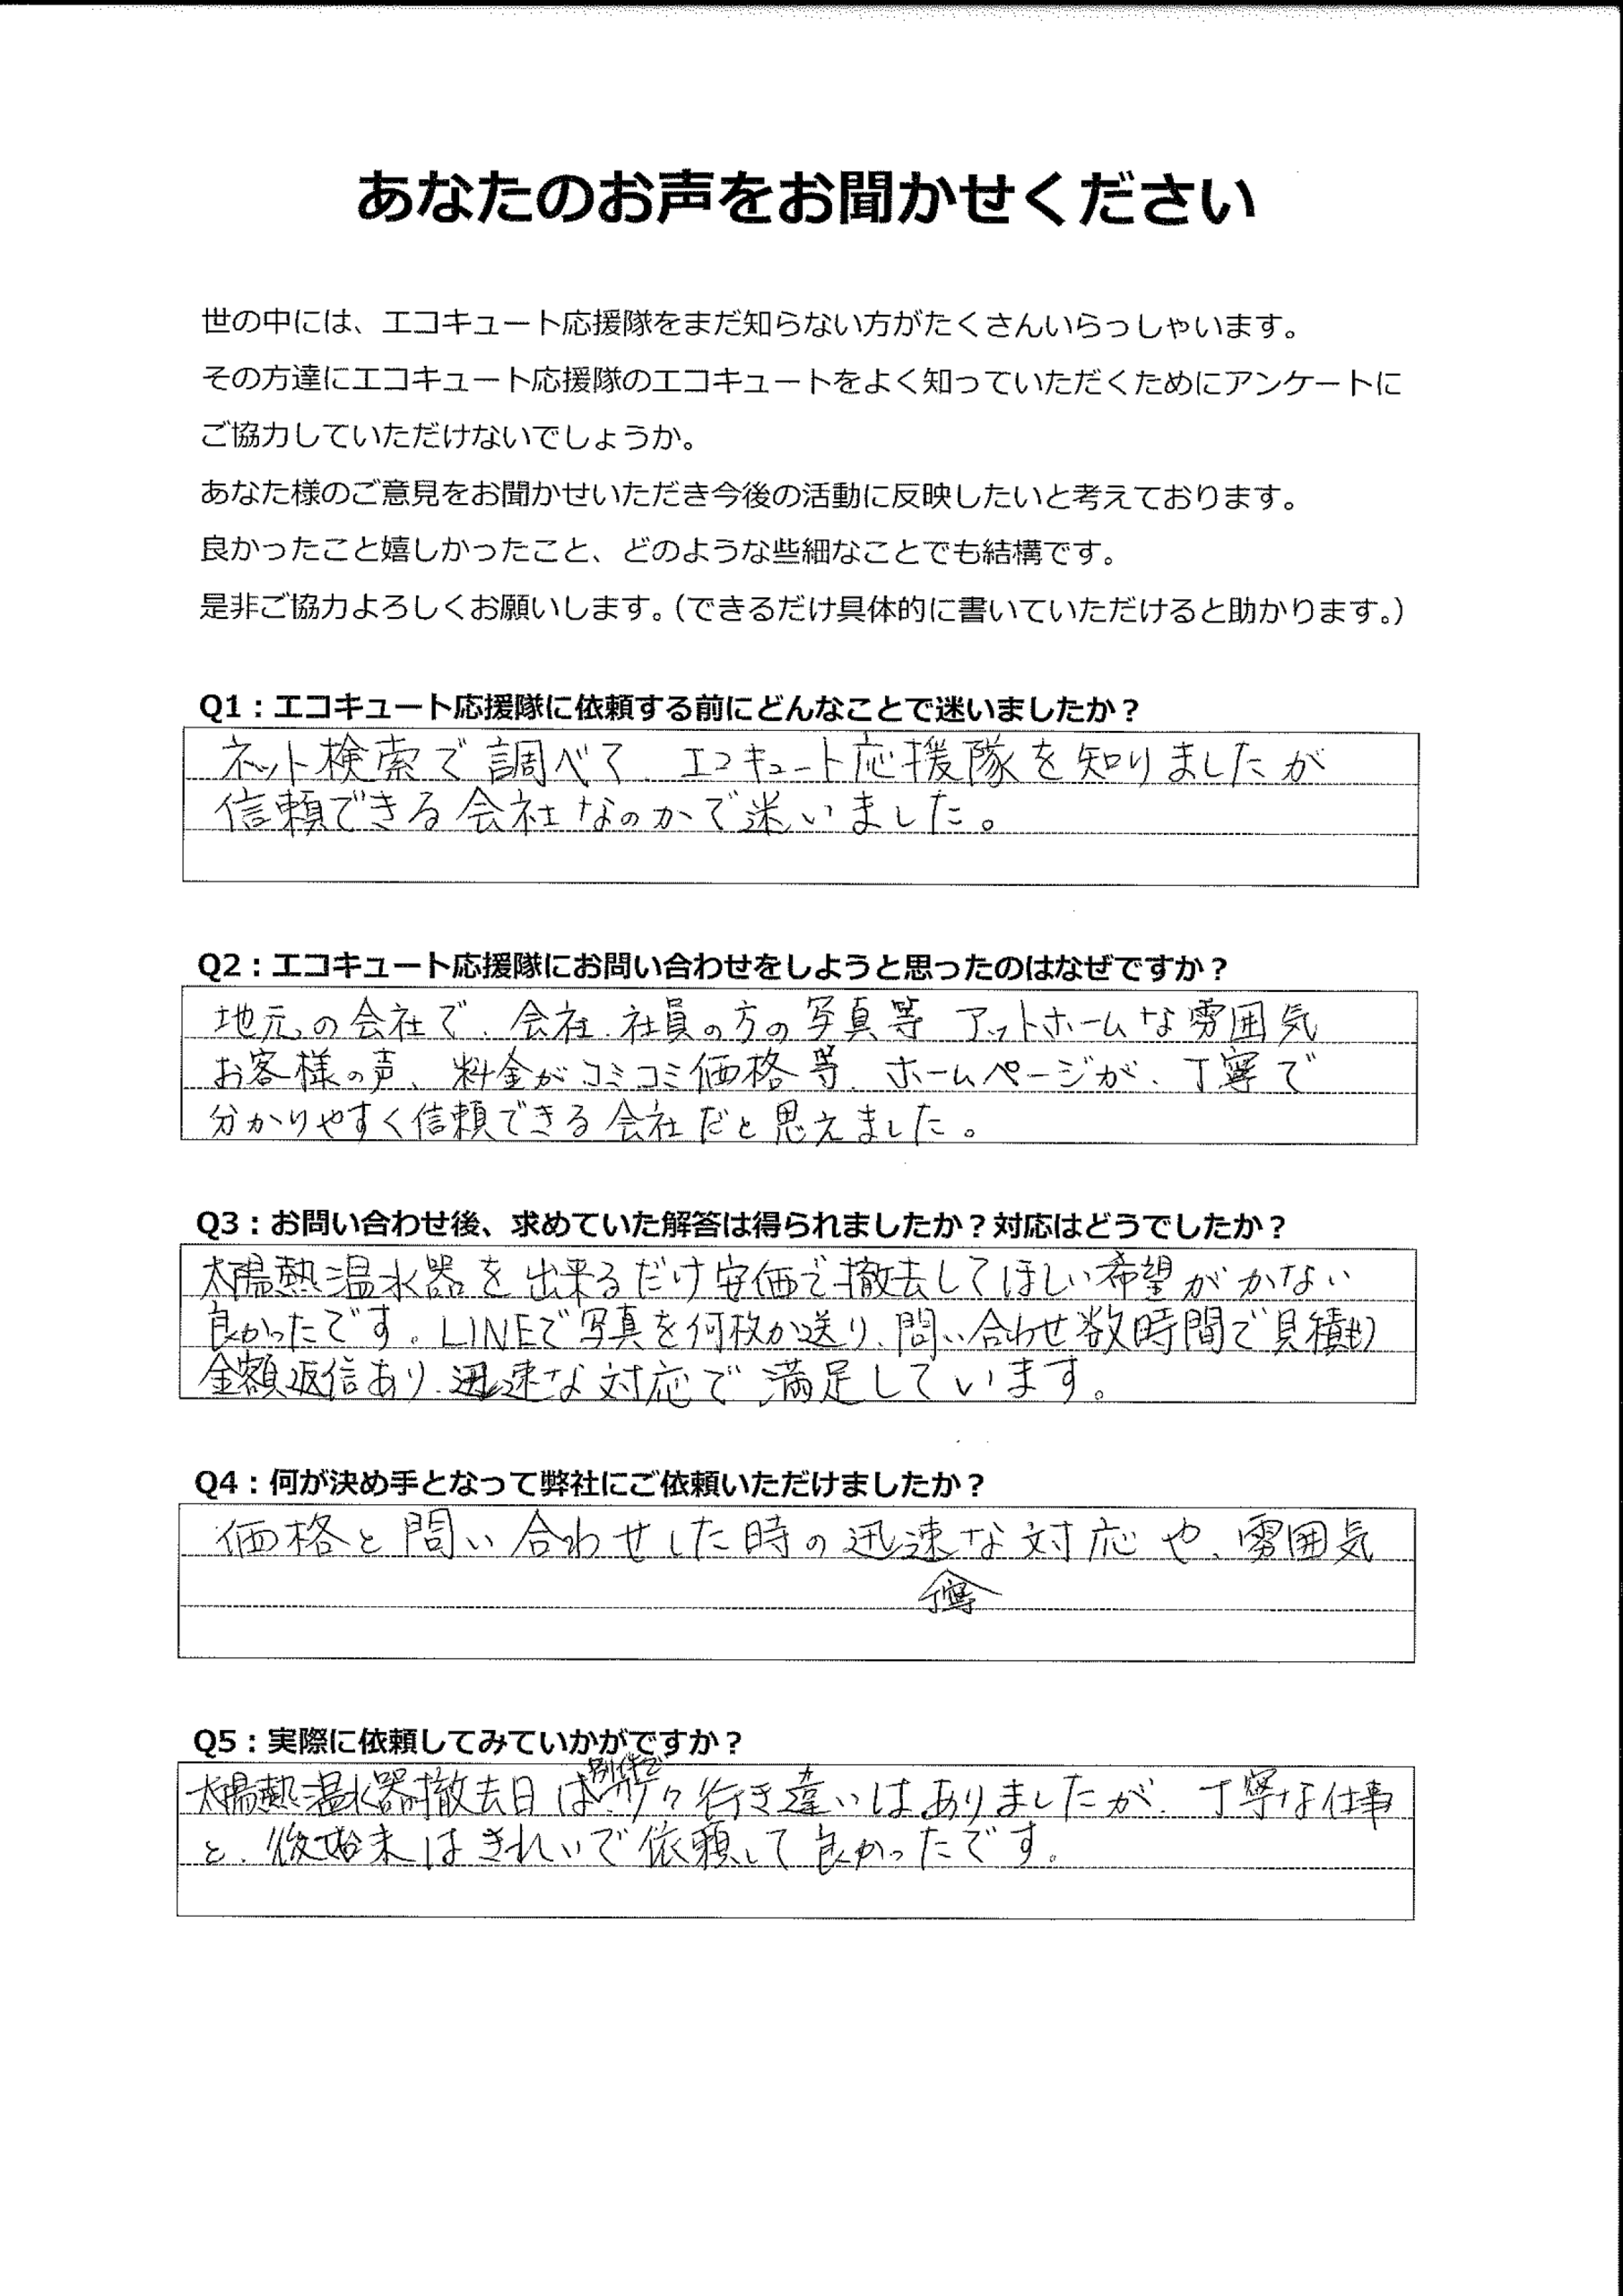 あなたのお声をお聞かせください
世の中には、エコキュート応援隊をまだ知らない方がたくさんいらっしゃいます。
その方達にエコキュート応援隊のエコキュートをよく知っていただくためにアンケートに
ご協力していただけないでしょうか。
あなた様のご意見をお聞かせいただき今後の活動に反映したいと考えております。
良かったこと嬉しかったこと、どのような些細なことでも結構です。
是非ご協力よろしくお願いします。（できるだけ具体的に書いていただけると助かります。）
Q1：エコキュート応援隊に依頼する前にどんなことで迷いましたか？
ネット検索で調べて、エコキュート応援隊を知りましたが
信頼できる会社なのかで迷いました。
Q2：エコキュート応援隊にお問い合わせをしようと思ったのはなぜですか？
地元の会社で、会社、社員の方の写真等 アットホームな雰囲気
お客様の声、料金がコミコミ価格等、ホームページが、丁寧で
分かりやすく信頼できる会社だと思えました。
Q3：お問い合わせ後、求めていた解答は得られましたか？対応はどうでしたか？
太陽熱温水器を出来るだけ安価で撤去してほしい希望がかない
良かったです。LINEで写真を何枚か送り、問い合わせ数時間で見積もり
金額返信あり、迅速な対応で満足しています。
Q4：何が決め手となって弊社にご依頼いただけましたか？
価格と問い合わせした時の迅速な対応や、雰囲気
丁寧
Q5：実際に依頼してみていかがですか？
別件で
太陽熱温水器撤去日は、少々行き違いはありましたが、丁寧な仕事
と、後始末はきれいで依頼して良かったです。